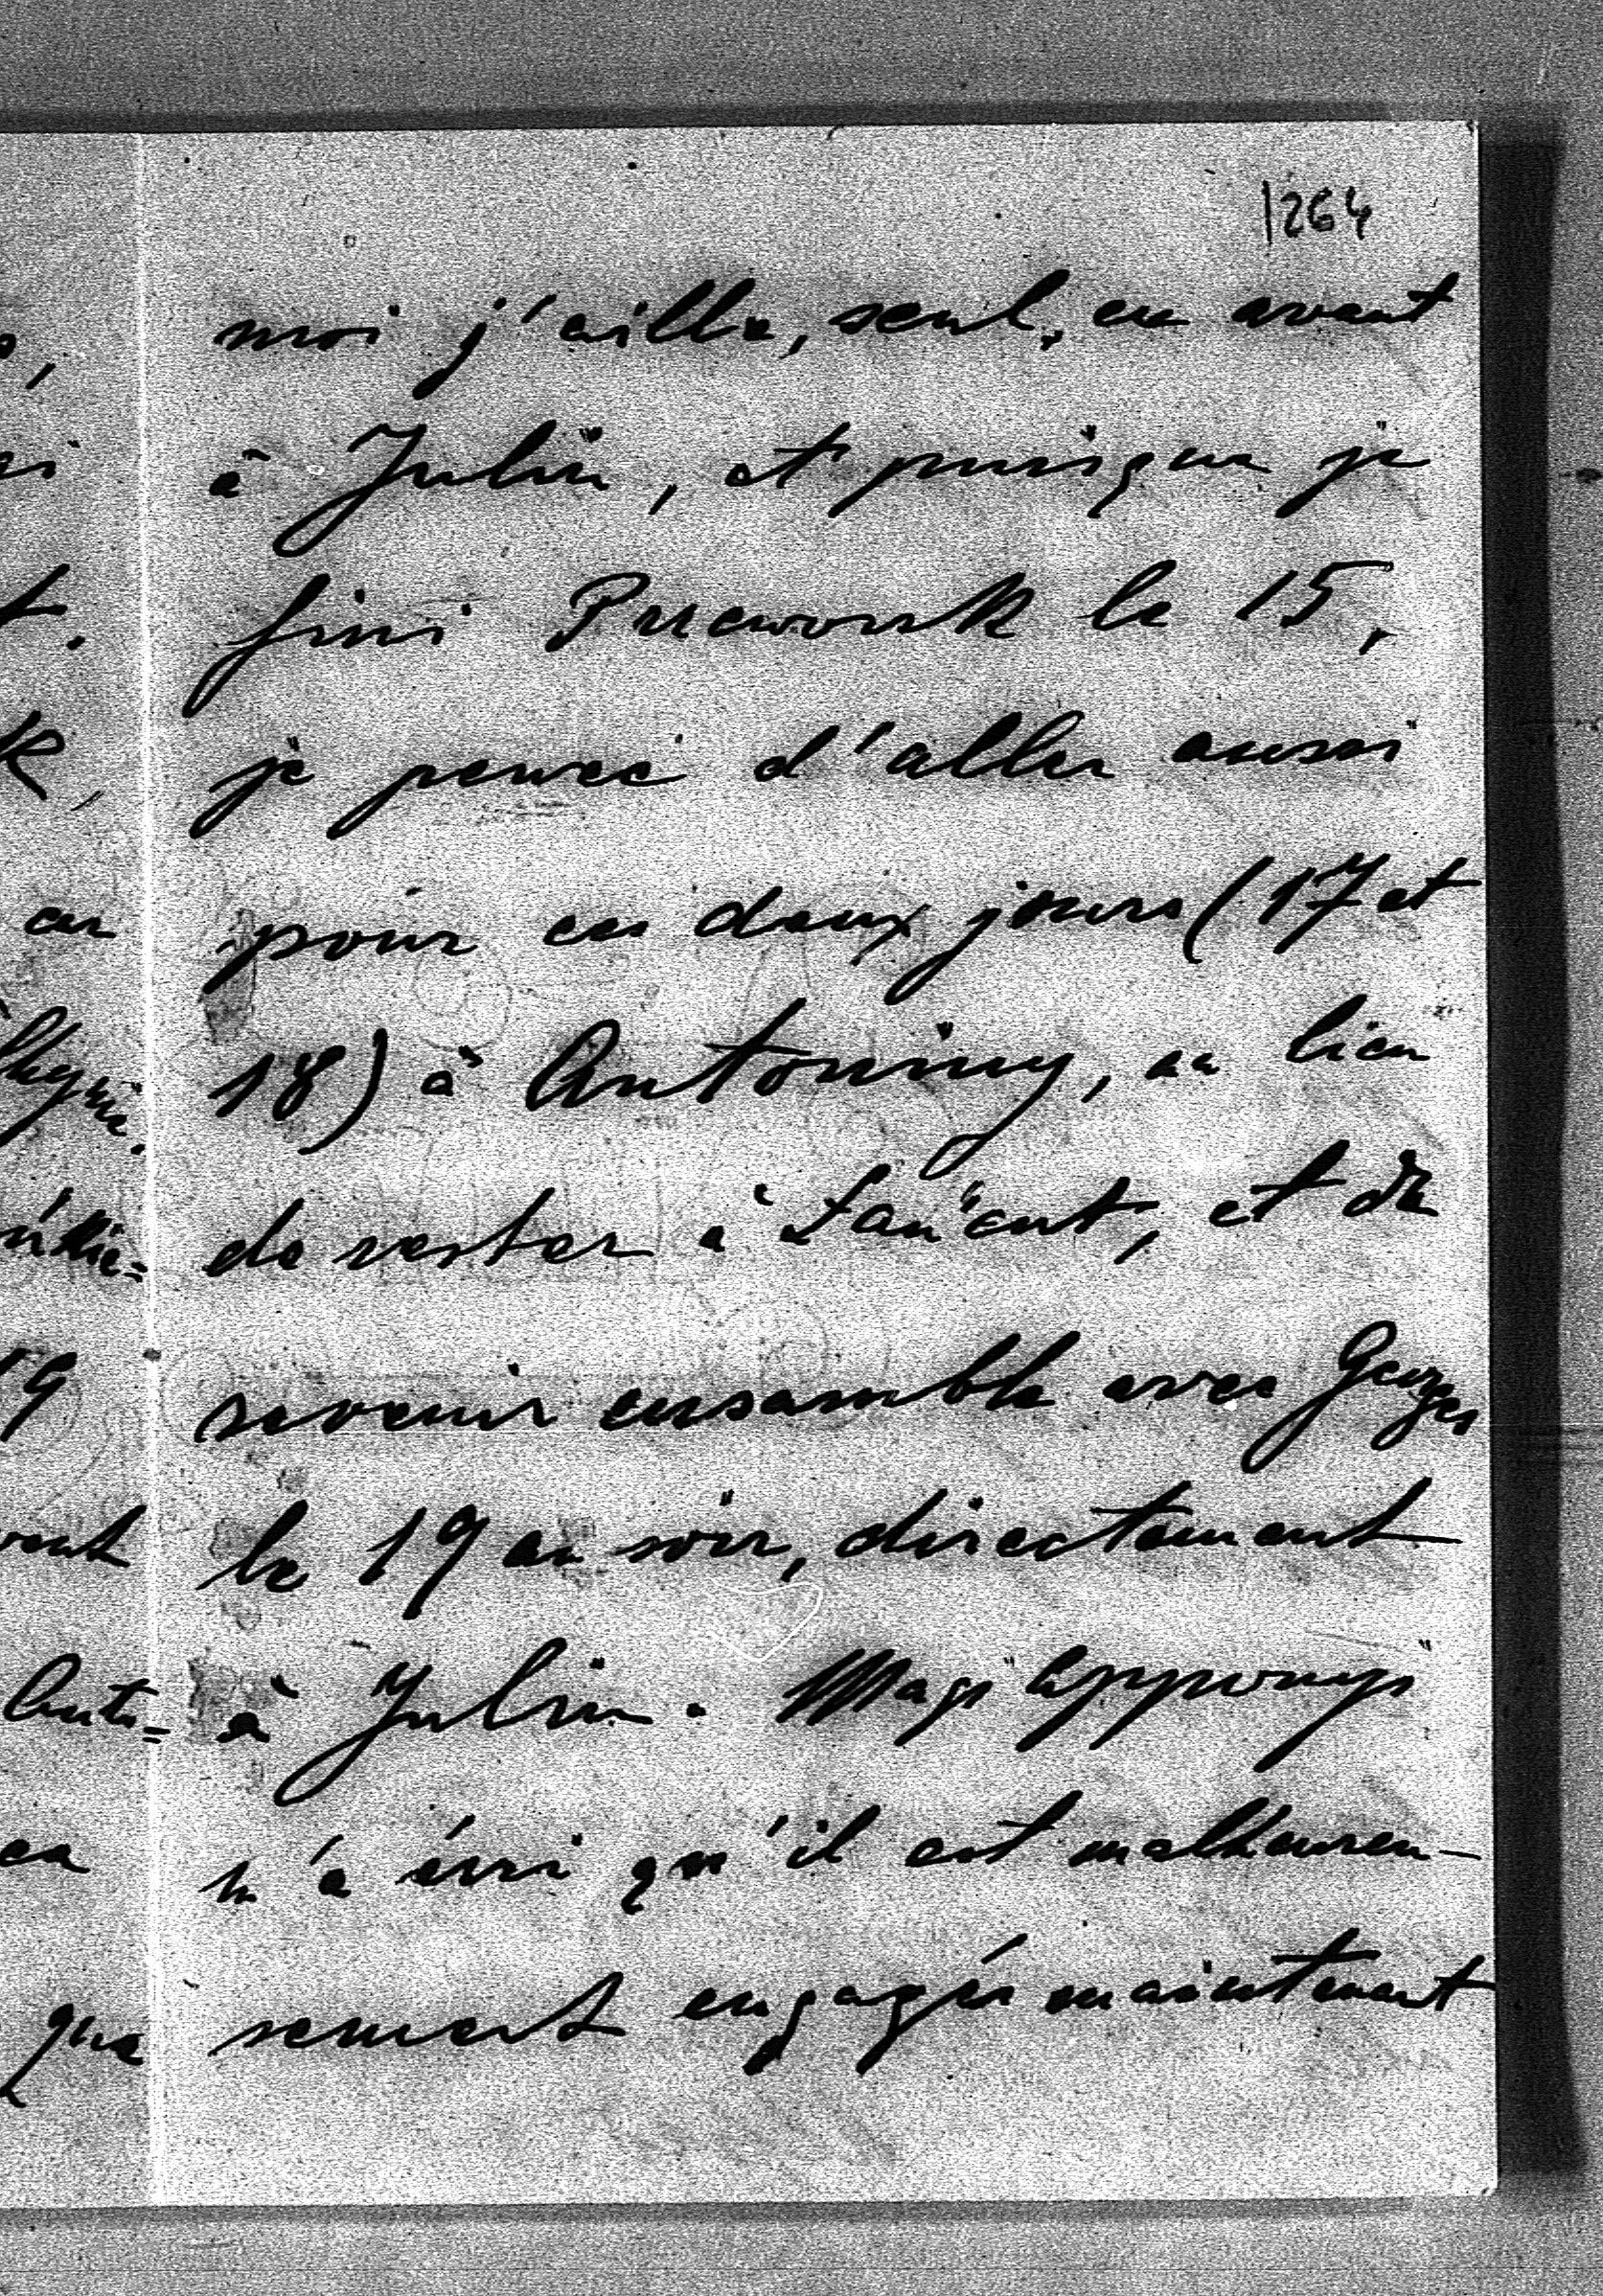 1264
moi j'aille, seul, en avant
à Julin, et puisque je
fini Przeworsk le 15,
je pense d'aller aussi
pour ces deux jours (17 et
18) à Antoniny, au lieu
de rester à Łańcut, et de
revenir ensemble avec Georges
le 19 au soir, directement
à Julin. Magi Apponyi
m'a écri qu'il est malheureu-
sement engagés maintenant